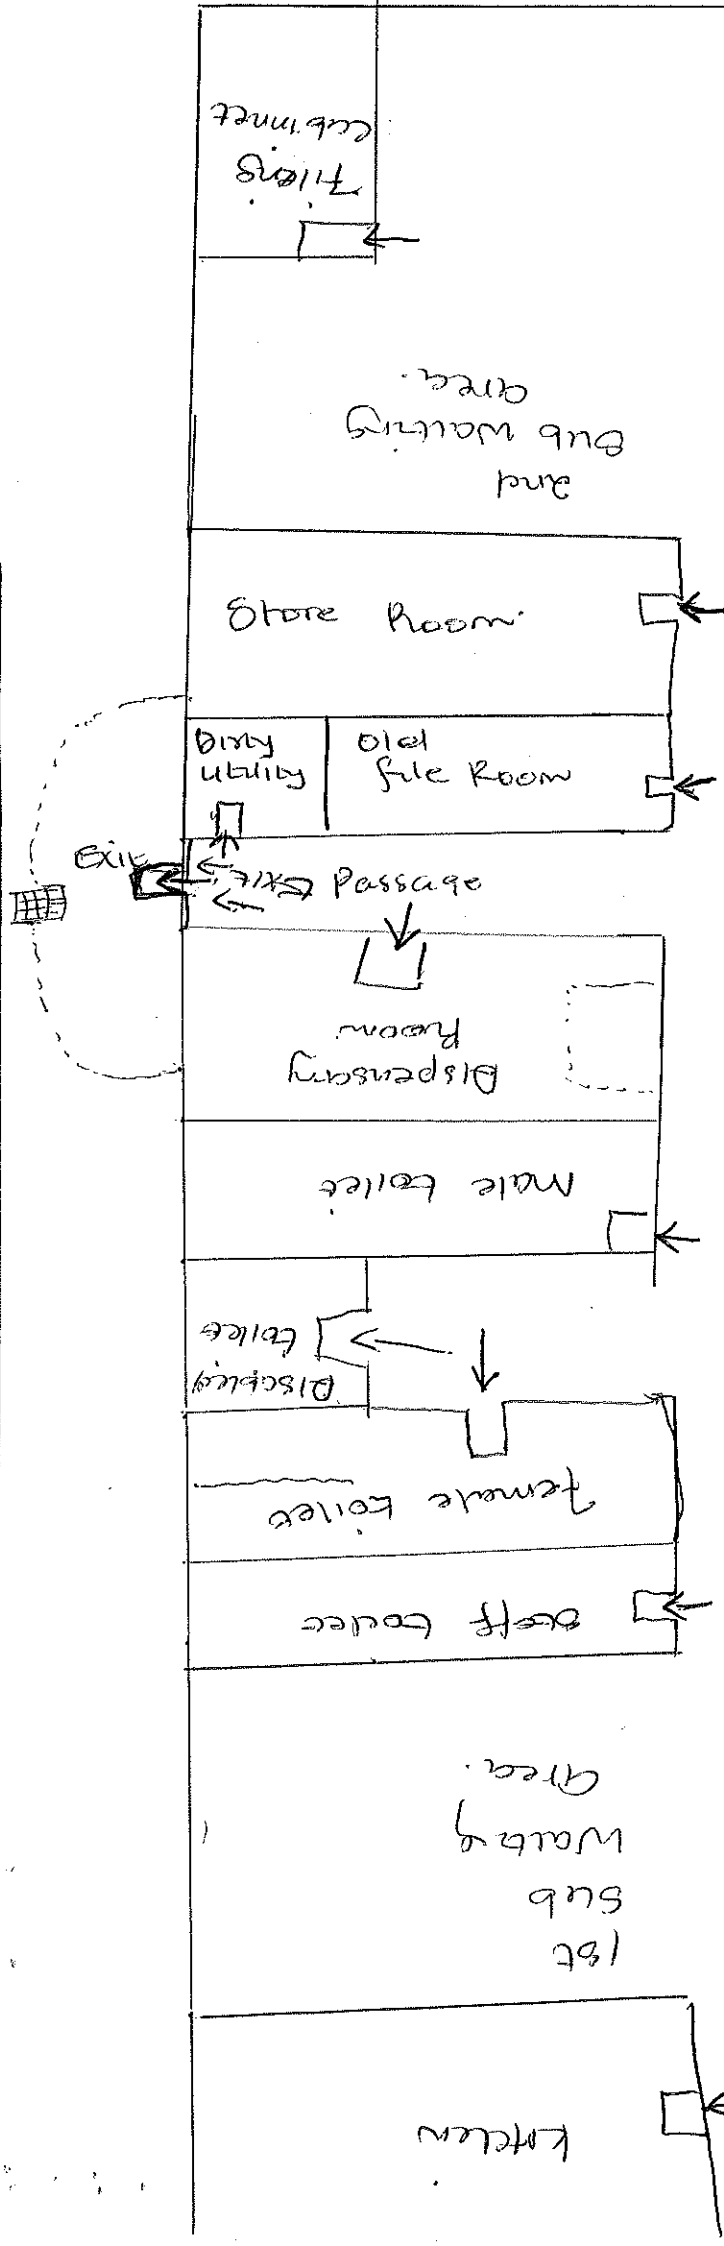 Filing
Cabinnet
2nd
Sub Waiting
area.
Store Room
Dirty
utility
Old
file Room
Exit
Exit
Passage
Dispensary
Room
Male toilet
Disabled
toilet
Female toilet
Staff toilet
1st
Sub
Waiting
Area.
Kitchen